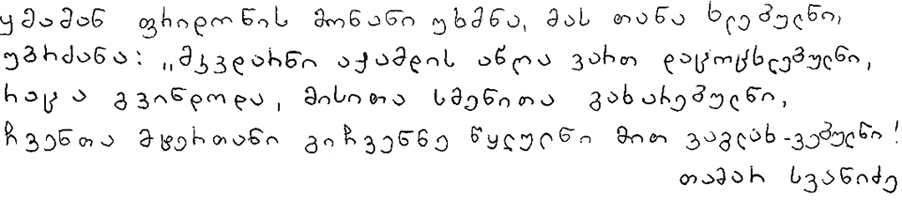 ყმამან ფრიდონის მონანი უხმნა, მას თანა ხლებულნი,
უბრძანა: „მკვდარნი აქამდის აწღა ვართ დაცოცხლებულნი,
რაცა გვინდოდა, მისითა სმენითა გახარებულნი,
ჩვენთა მტერთანი გიჩვენნე წყლულნი მით ვაგლახ-ვებულნი!
თამარ სვანიძე